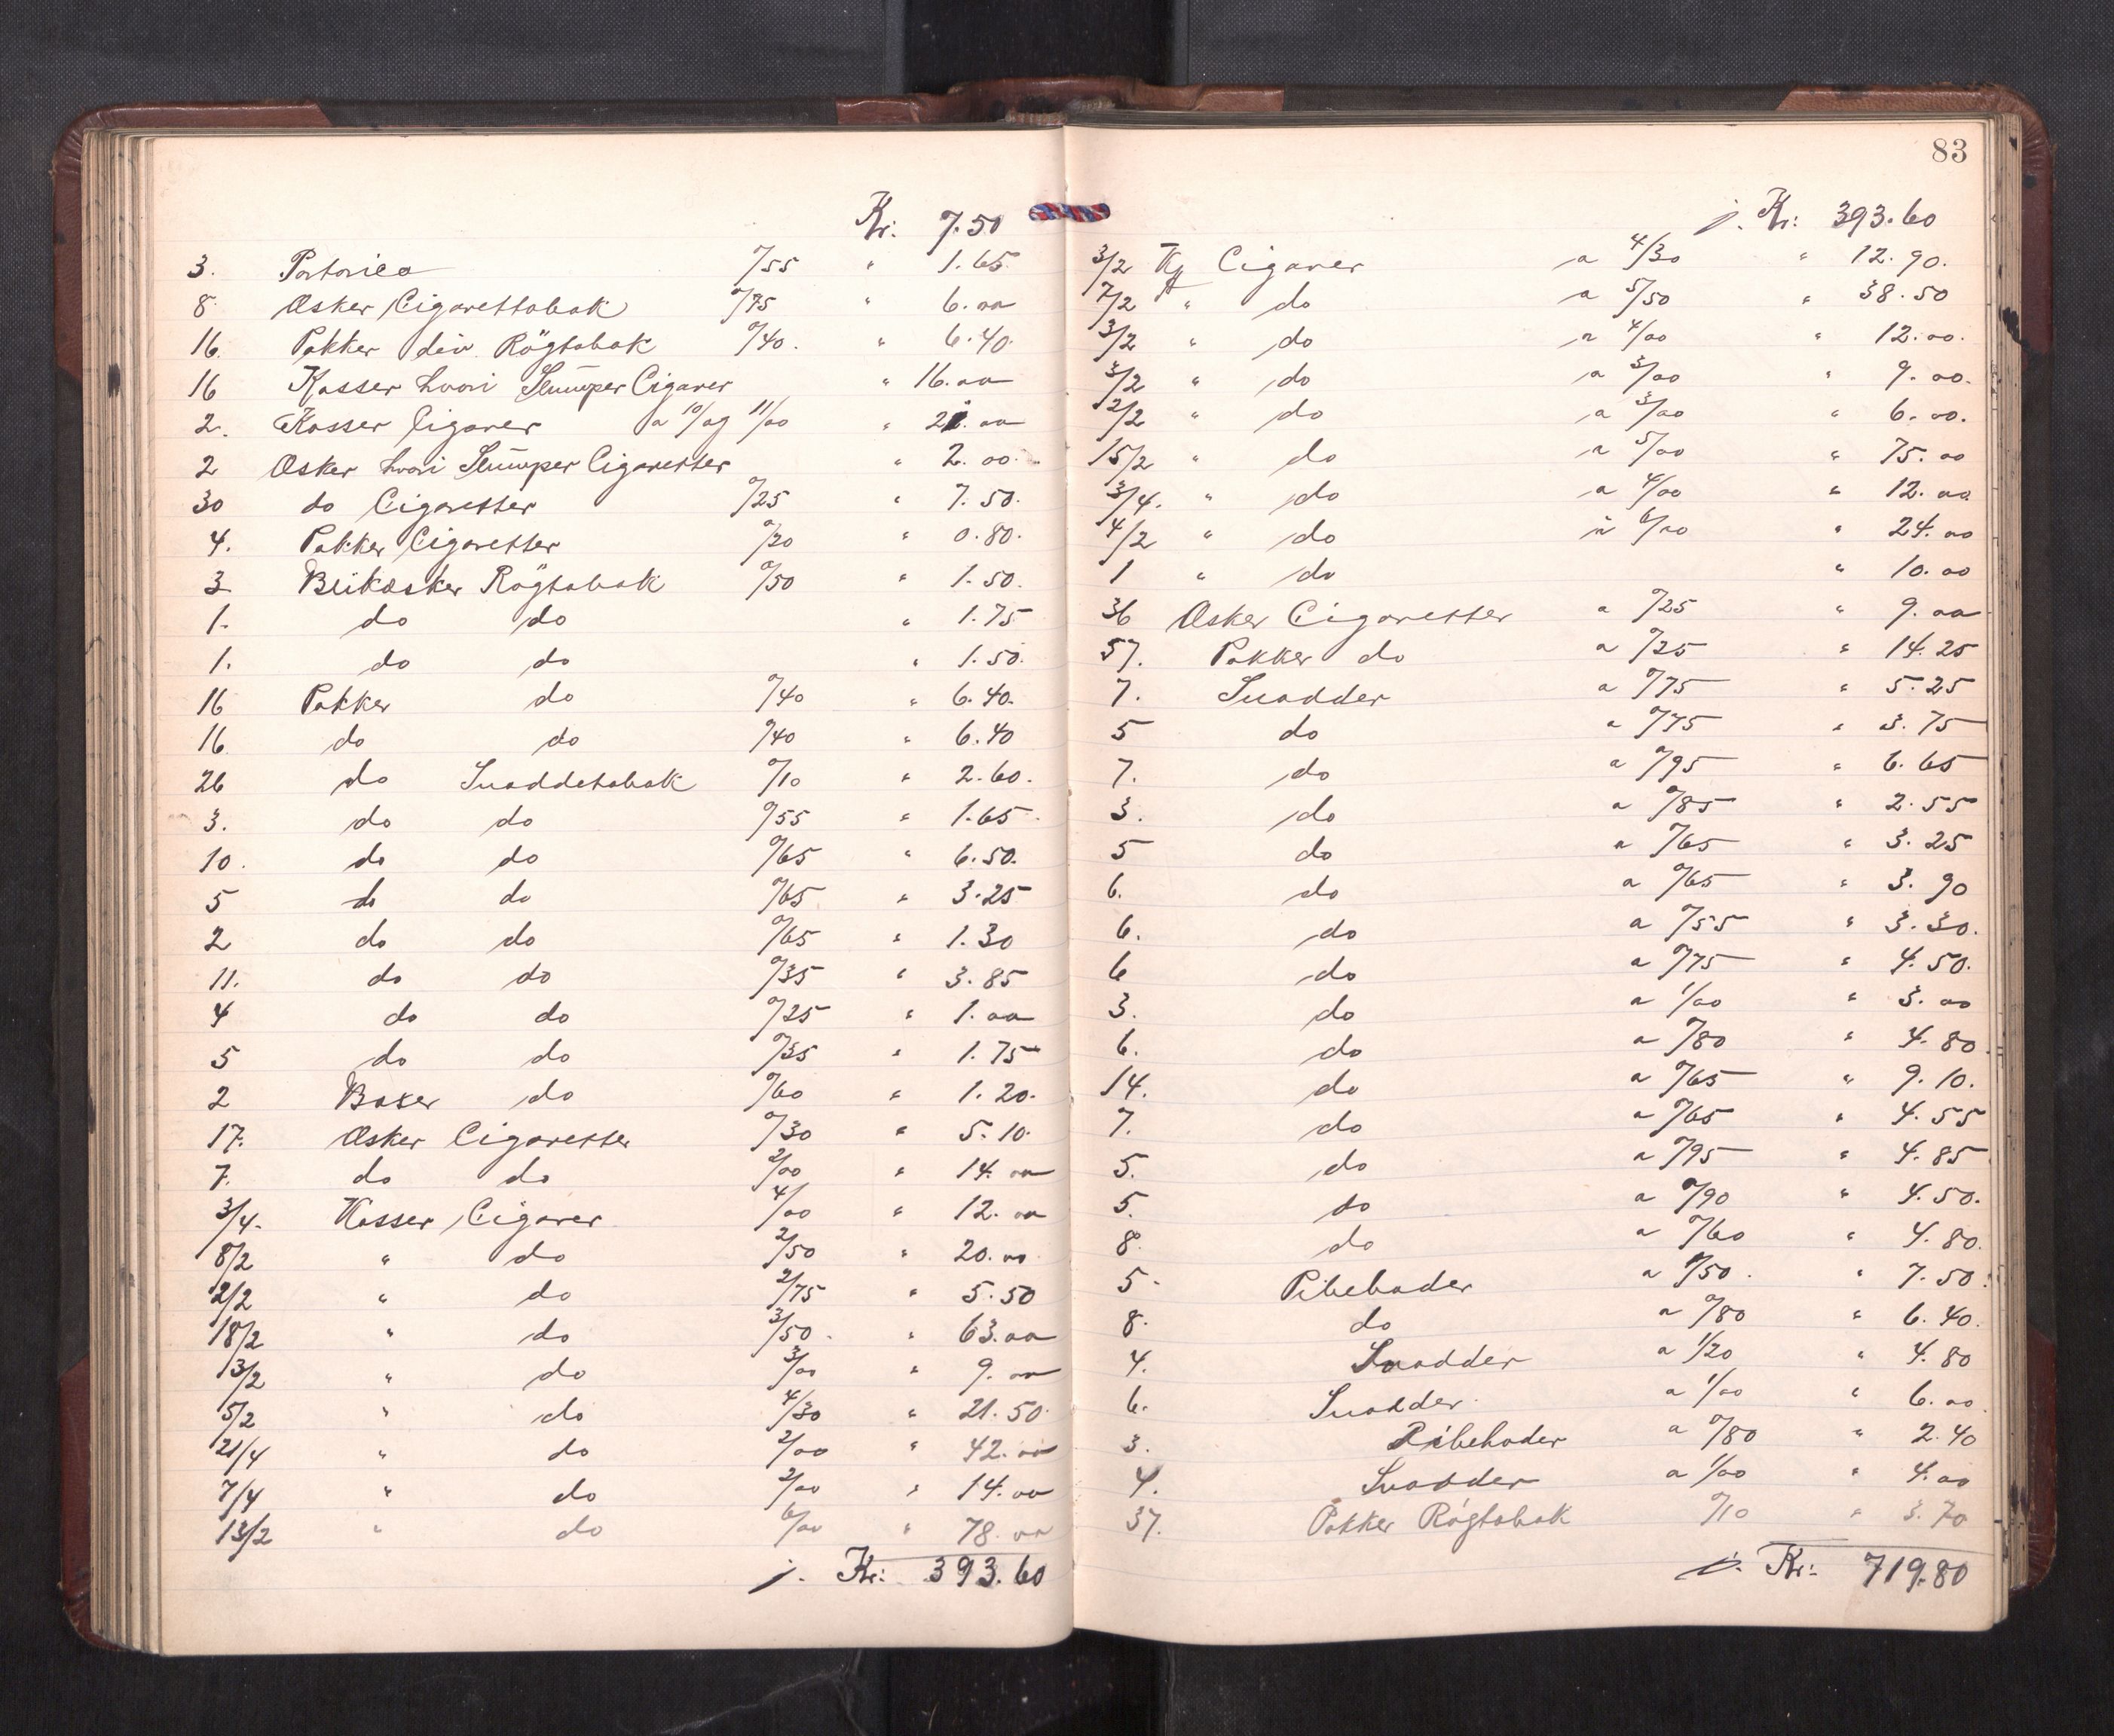 Kr. 7.50
3. Portorico 0/55 " 1.65
8 Æsker Cigarettobak 0/75 " 6.00
16. Pakker div. Rögtobak 0/40. " 6.40.
16 Kasser hvori Slumper Cigarer " 16.00
2. Kasser Cigarer a 10/ og 11/00 " 21.00
2 Æsker hvori Slumper Cigaretter " 2.00.
30 do Cigaretter 0/25 " 7.50.
4. Pakker Cigaretter 0/20 " 0.80.
3 Blikæsker Rögtobak 0/50 " 1.50.
1. do do " 1.75
1. do do " 1.50.
16 Pakker do 0/40 " 6.40.
16. do do 0/40 " 6.40
26 do Snaddetobak 0/10 " 2.60.
3. do do 0/55 " 1.65.
10. do do 0/65 " 6.50.
5 do do 0/65 " 3.25
2 do do 0/65 " 1.30
11. do do 0/35 " 3.85
4 do do 0/25 " 1.00
5 do do 0/35 " 1.75
2 Boxer do 0/60 " 1.20.
17. Æsker Cigaretter 0/30 " 5.10.
7. do do 2/00 " 14.00
3/4. Kasser Cigarer 4/00 " 12.00
8/2 " do 2/50 " 20.00
2/2 " do 2/75 " 5.50
18/2 " do 3/50. " 63.00
3/2 " do 3/00 " 9.00
5/2 " do 4/30 " 21.50.
21/4 " do 2/00 " 42.00
7/4 " do 2/00 " 14.00
13/2 " do 6/00 " 78.00
j. Kr: 393.60
83
j. Kr: 393.60
3/2 Ks Cigarer a 4/30 " 12.90.
7/2 " do a 5/50 " 38.50
3/2 " do a 4/00 " 12.00.
3/2 " do a 3/00 " 9.00.
2/2 " do a 3/00 " 6.00.
15/2 " do a 5/00 " 75.00
3/4. " do a 4/00 " 12.00
4/2 " do a 6/00 " 24.00
1 " do " 10.00
36 Æsker Cigaretter a 0/25 " 9.00
57. Pakker do a 0/25 " 14.25
7. Snadder a 0/75 " 5.25
5 do a 0/75 " 3.75
7. do a 0/95 " 6.65
3. do a 0/85 " 2.55
5 do a 0/65 " 3.25
6. do a 0/65 " 3.90
6. do a 0/55 " 3.30.
6 do a 0/75 " 4.50.
3. do a 1/00 " 3.00
6. do a 0/80 " 4.80.
14. do a 0/65 " 9.10.
7. do a 0/65 " 4.55
5. do a 0/95 " 4.85
5. do a 0/90 " 4.50.
8. do a 0/60 " 4.80.
5. Pibehoder a 1/50. " 7.50.
8. do a 0/80 " 6.40.
4. Snadder a 1/20 " 4.80
6. Snadder. a 1/00 " 6.00.
3. Pibehoder a 0/80 " 2.40
4. Snadder a 1/00 " 4.00
37. Pakker Rögtobak 0/10 " 3.70
j. Kr: 719.80